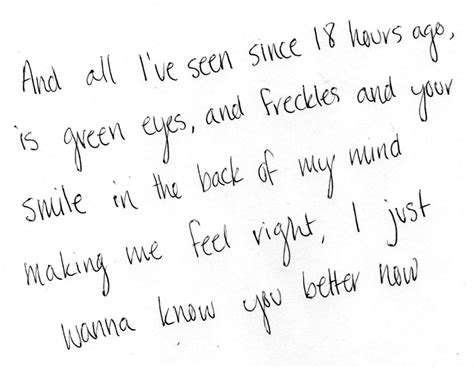 And all I've seen since 18 hours ago,
is green eyes, and freckles and your
smile in the back of my mind
making me feel right, I just
wanna know you better now